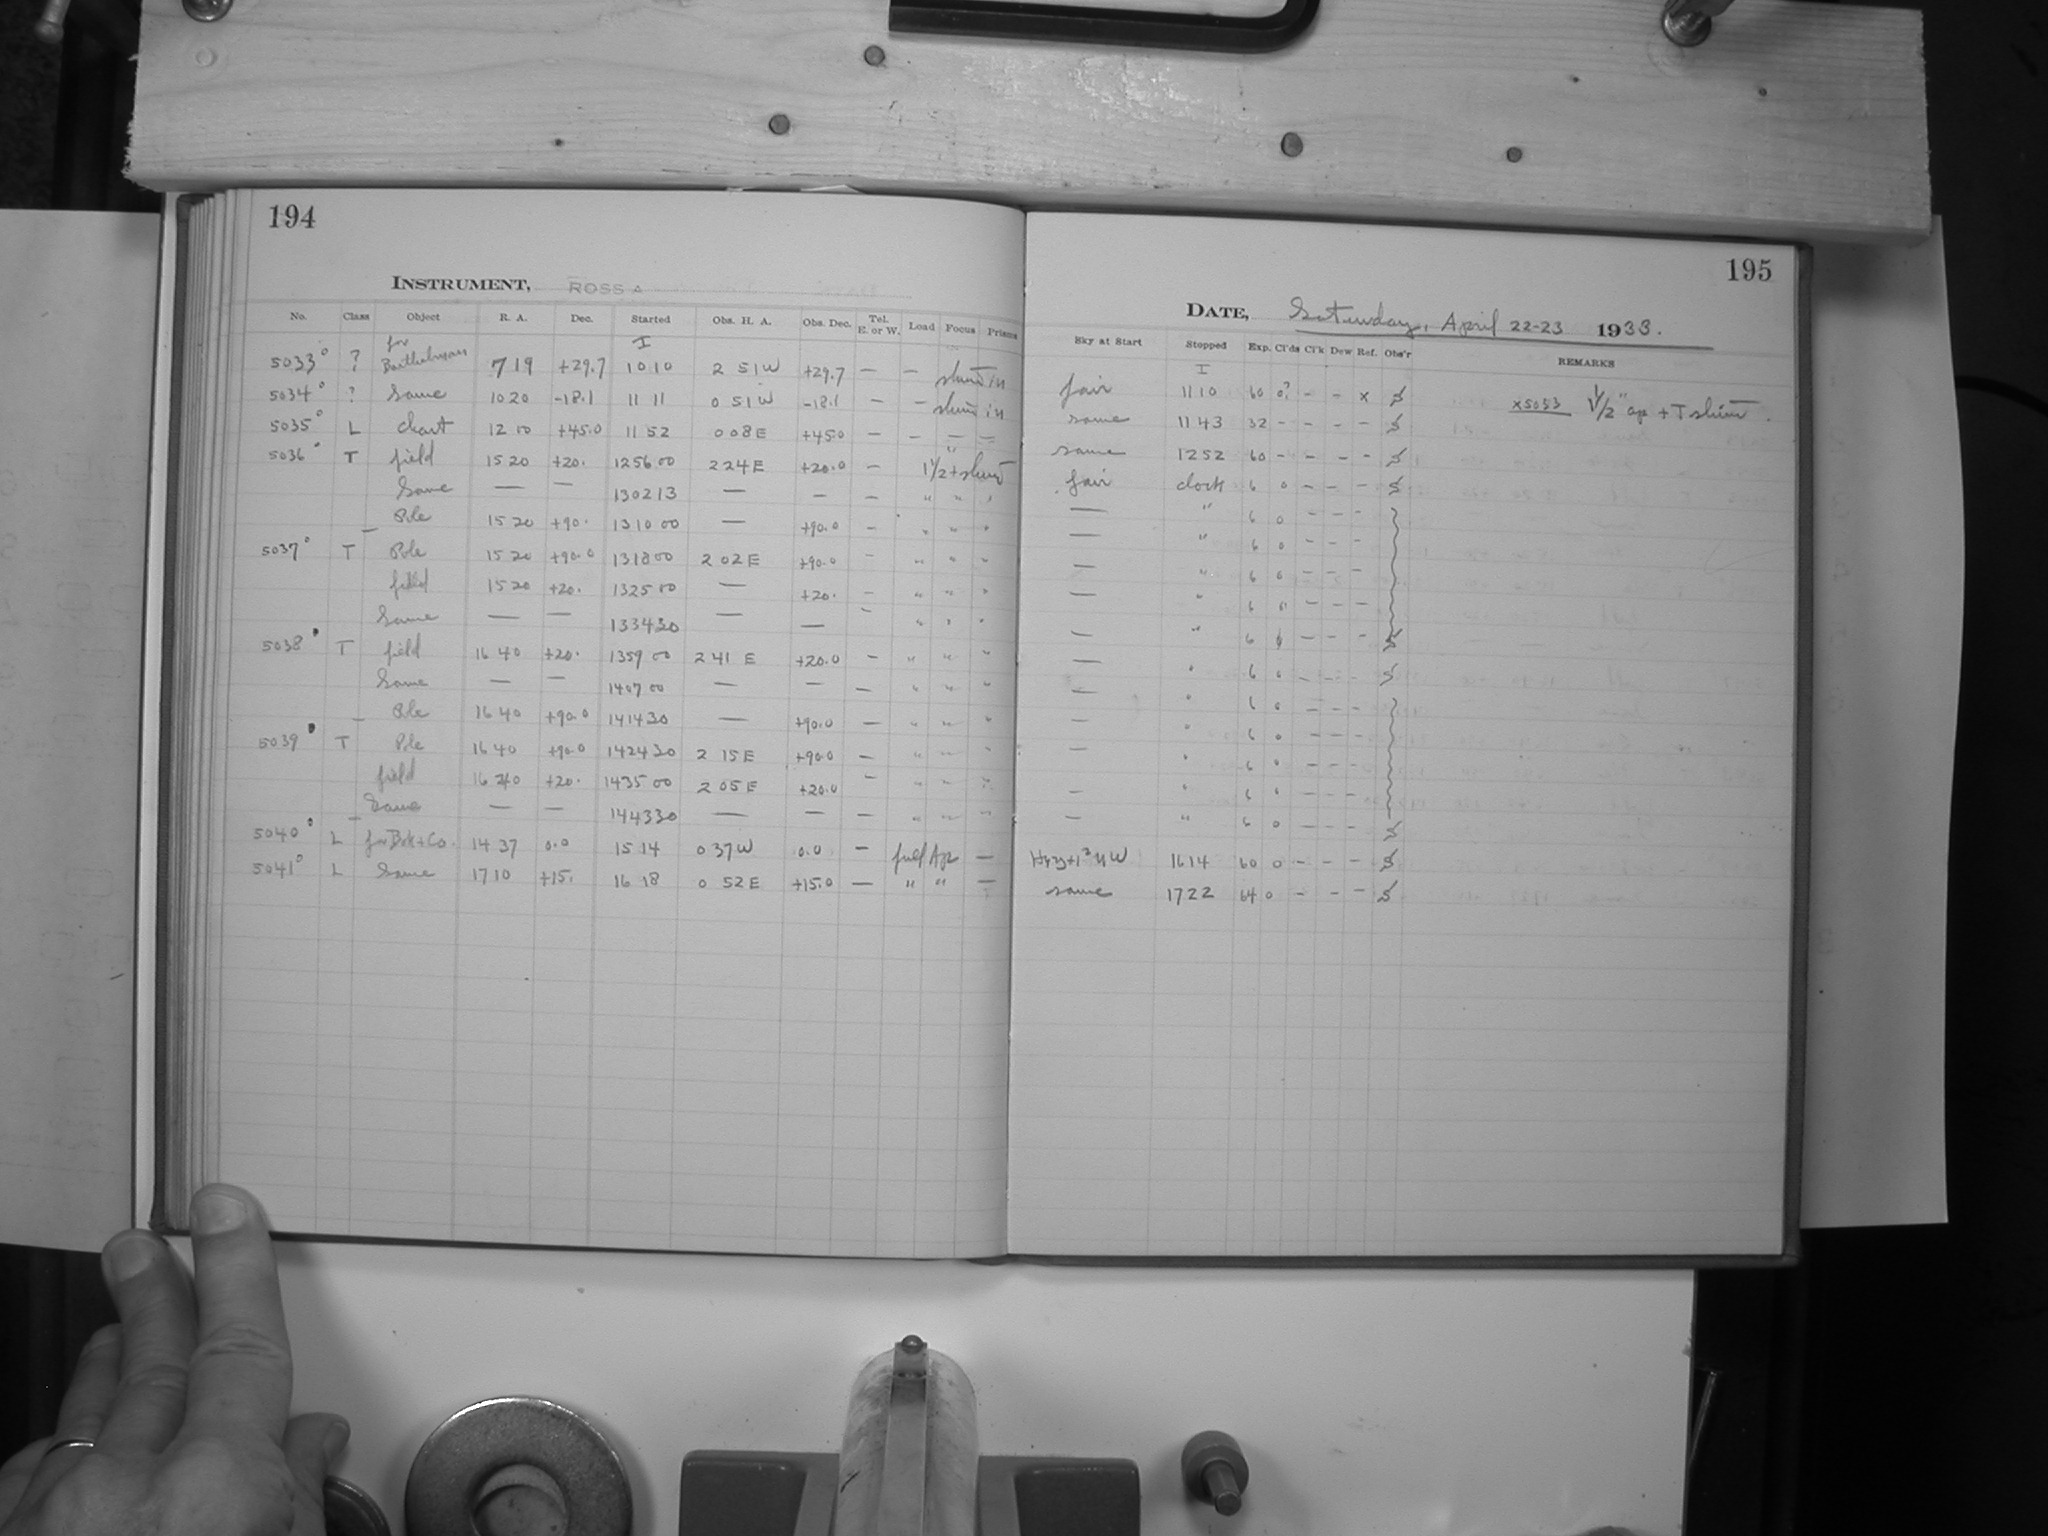 194
INSTRUMENT, ROSS A
No. Class Object R. A. Dec. Started Obs. H. A. Obs. Dec. Tel. E. or W. Load Focus Prisms
I
5033° ? for 7 19 +29.7 10 10 2 51 W +29.7 — — in
5034° ? Same 10 20 -18.1 11 11 0 51 W -18.1 — — in
5035° L chart 12 10 +45.0 11 52 0 08 E +45.0 — — — —
5036° T field 15 20 +20. 12 56 00 2 24 E +20.0 — 1 1/2 +
Same — — 13 02 13 — — — " " "
Pole 15 20 +90. 13 10 00 — +90.0 — " " "
5037° T Pole 15 20 +90.0 13 18 00 2 02 E +90.0 — " " "
field 15 20 +20. 13 25 00 — +20. — " " "
Same — — 13 34 30 — — — " " "
5038 T field 16 40 +20. 13 59 00 2 41 E +20.0 — " " "
Same — — 14 07 00 — — — " " "
Pole 16 40 +90.0 14 14 30 — +90.0 — " " "
5039 T Pole 16 40 +90.0 14 24 30 2 15 E +90.0 — " " "
field 16 40 +20. 14 35 00 2 05 E +20.0 — " " "
Same — — 14 43 30 — — — " " "
5040° L for Bok + Co. 14 37 0.0 15 14 0 37 W 0.0 — full Ap —
5041° L Same 17 10 +15. 16 18 0 52 E +15.0 — " " —
195
DATE, Saturday, April 22-23 1933.
Sky at Start Stopped Exp. Cl'ds Cl'k Dew Ref. Obs'r REMARKS
I
fair 11 10 60 0? - - x S x5053 1 1/2" ap + T
same 11 43 32 - - - - S
same 12 52 60 - - - - S
fair clock 6 0 - - - S
— " 6 0 - - -
— " 6 0 - - -
— " 6 0 - - -
— " 6 0 - - -
— " 6 0 - - - S
— " 6 0 - - - S
— " 6 0 - - -
— " 6 0 - - -
— " 6 0 - - -
— " 6 0 - - -
— " 6 0 - - - S
NW 16 14 60 0 - - - S
same 17 22 64 0 - - - S